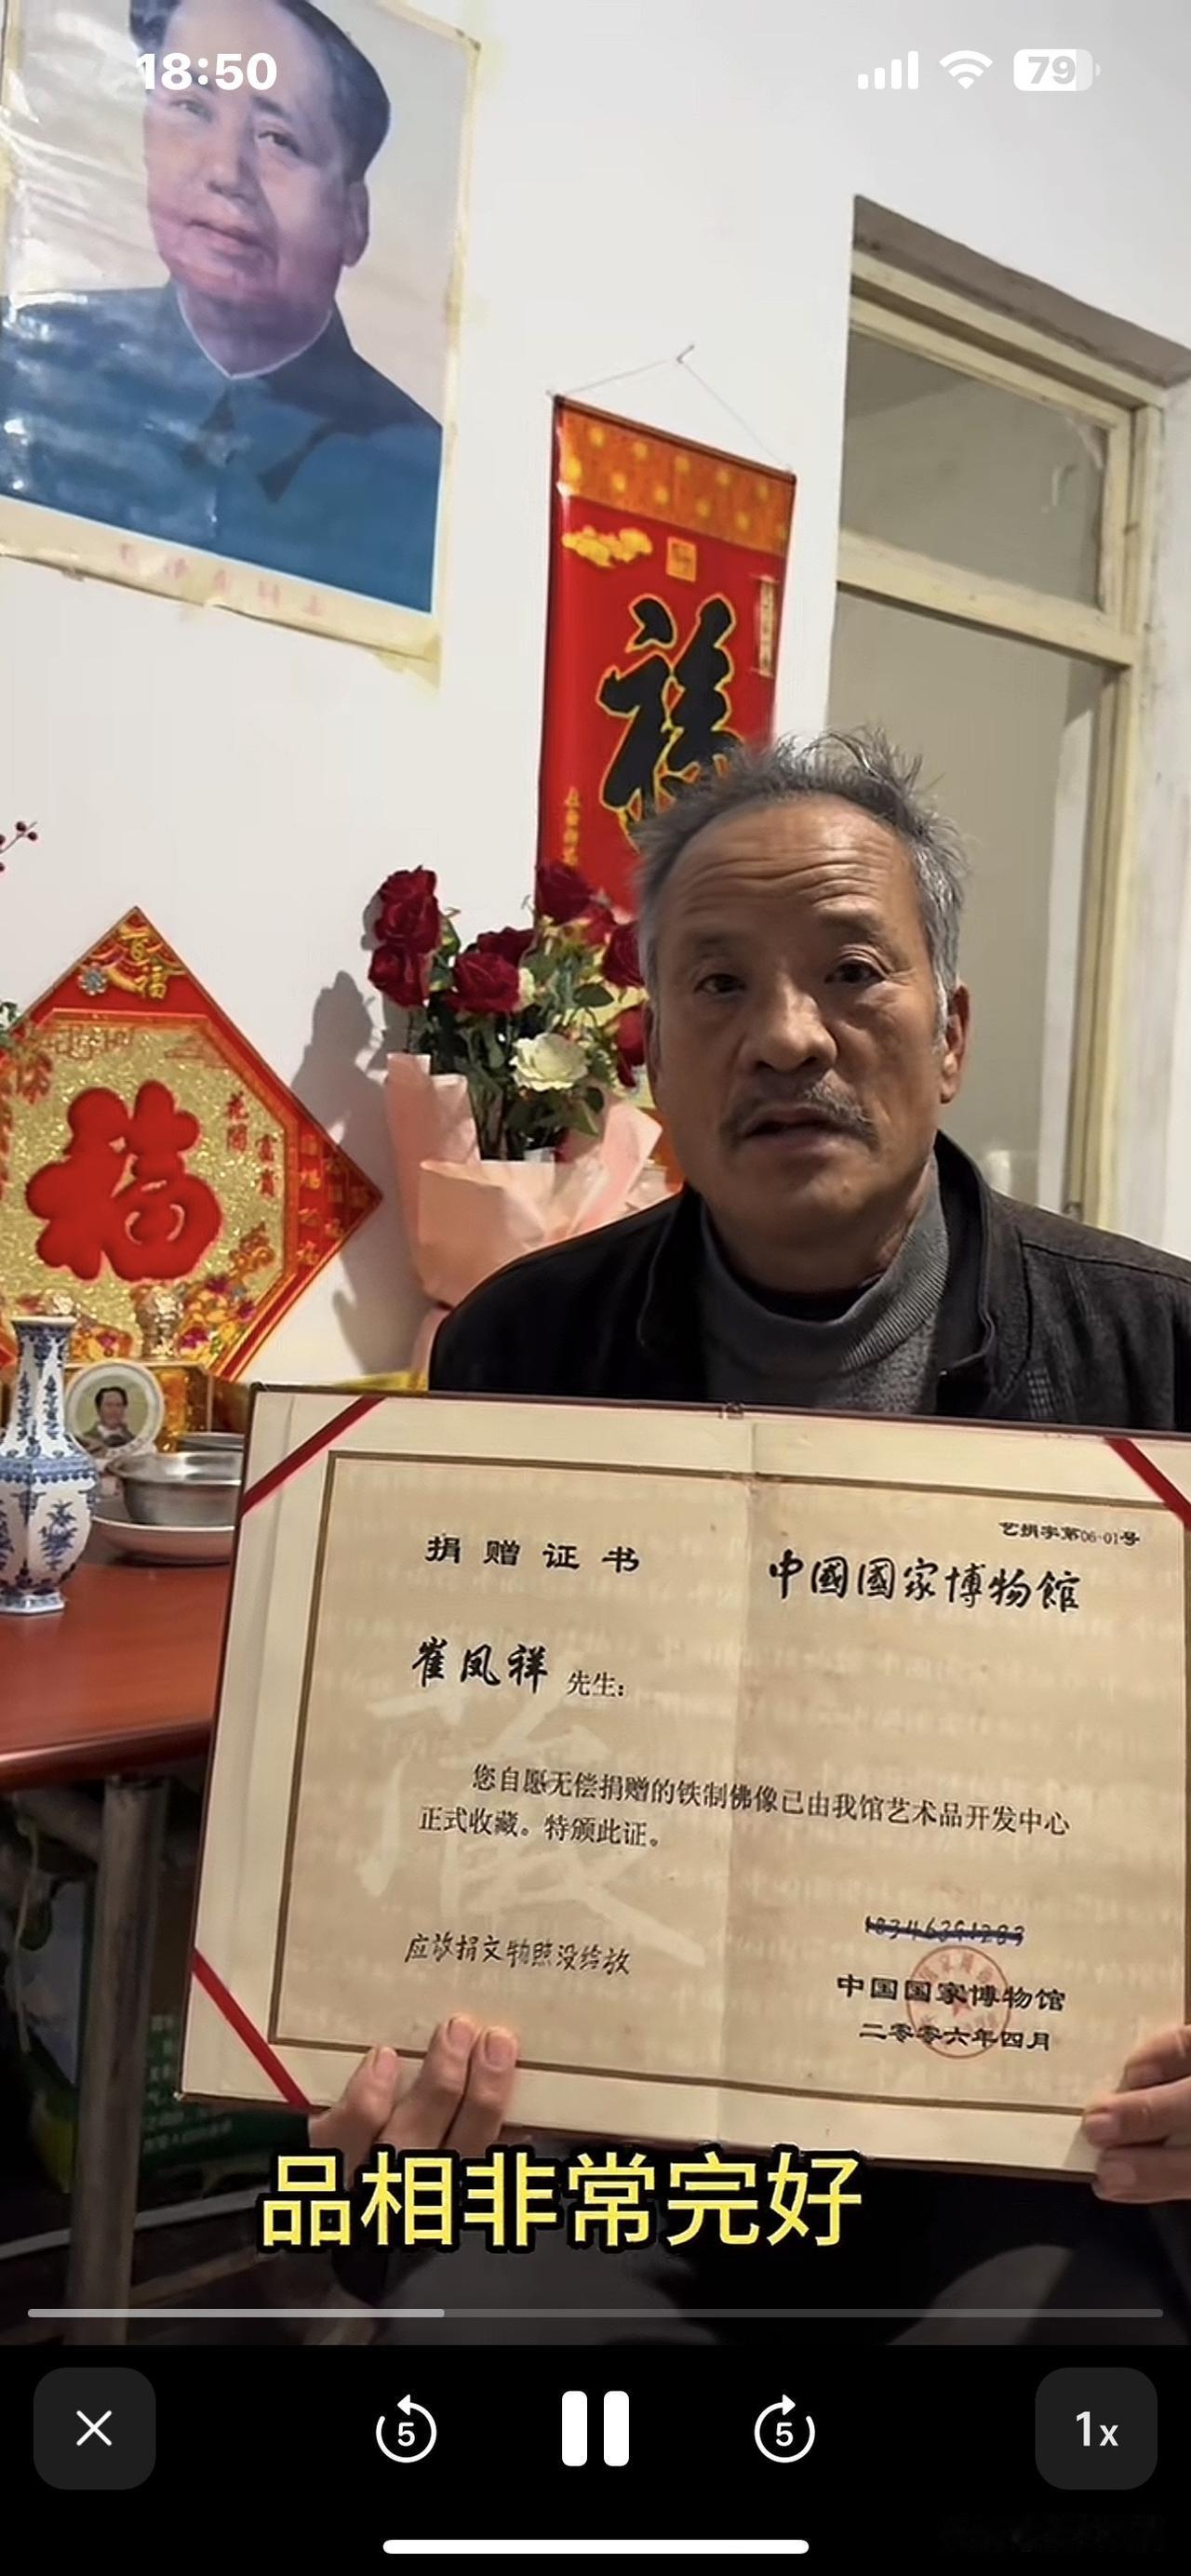 18:50
79
福
福
捐赠证书
艺捐字第06-01号
中國國家博物馆
崔凤祥 先生：
您自愿无偿捐赠的铁制佛像已由我馆艺术品开发中心
正式收藏。特颁此证。
应放捐文物照没给放
中国国家博物馆
二零零六年四月
品相非常完好
5
5
1x